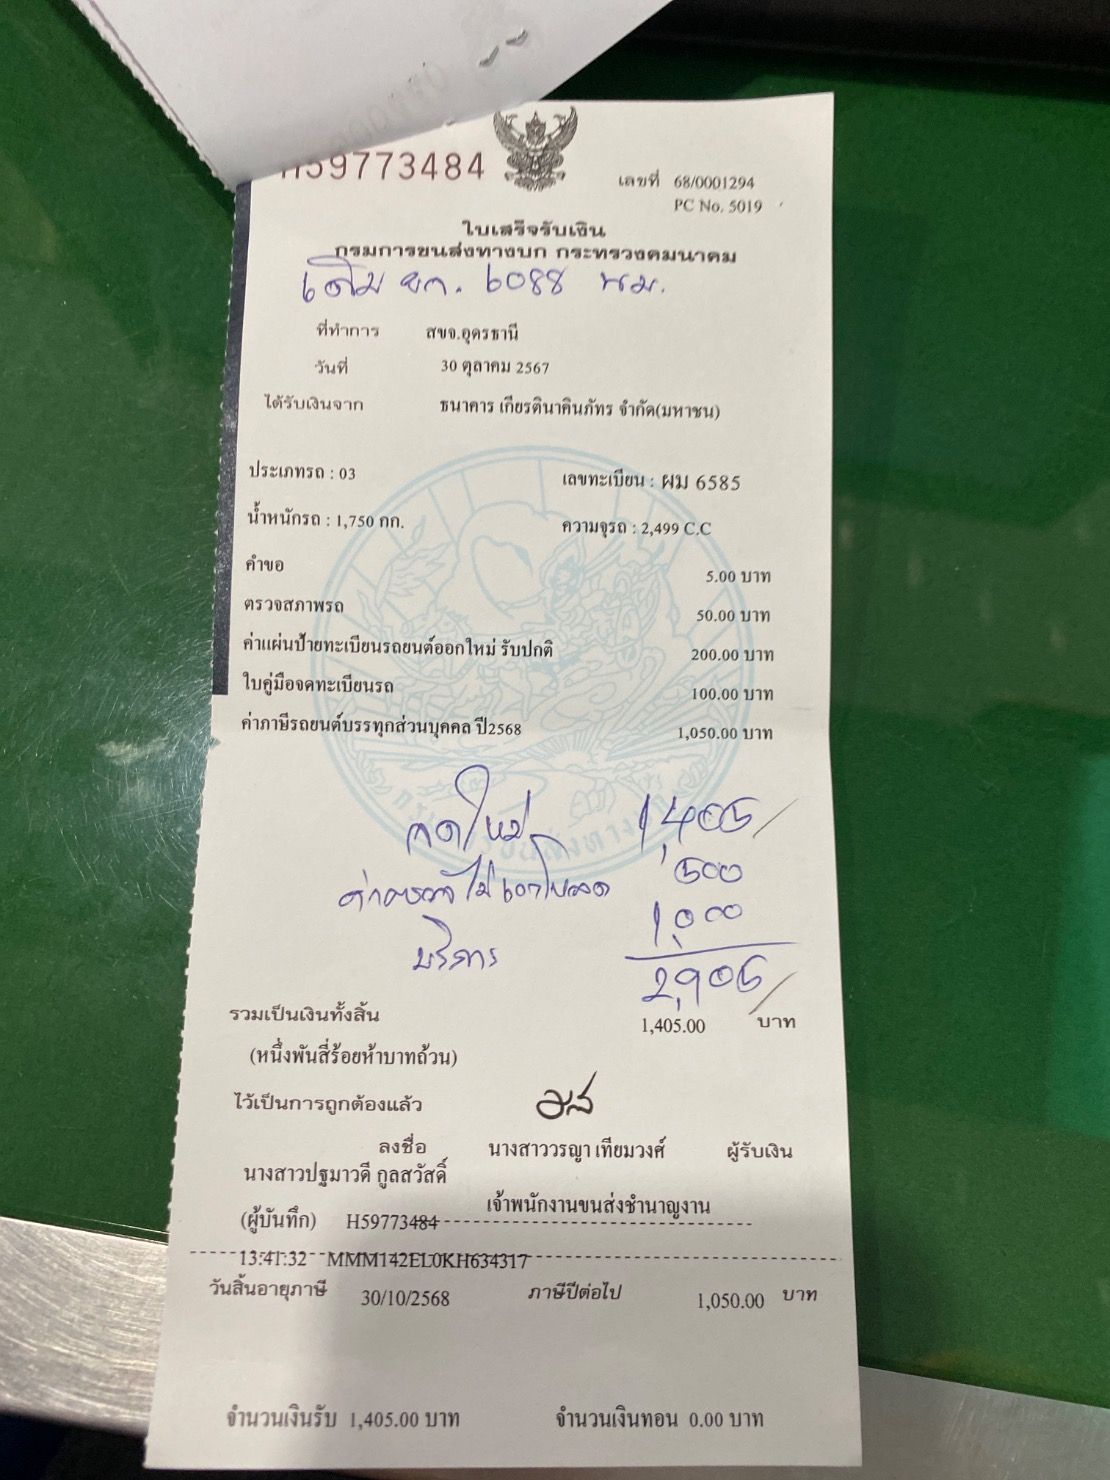 H59773484
เลขที่ 68/0001294
PC No. 5019
ใบเสร็จรับเงิน
กรมการขนส่งทางบก กระทรวงคมนาคม
เดิม ยก. 6088 นม.
ที่ทำการ สขจ.อุดรธานี
วันที่ 30 ตุลาคม 2567
ได้รับเงินจาก ธนาคาร เกียรตินาคินภัทร จำกัด(มหาชน)
ประเภทรถ : 03 เลขทะเบียน : ผม 6585
น้ำหนักรถ : 1,750 กก. ความจุรถ : 2,499 C.C
คำขอ 5.00 บาท
ตรวจสภาพรถ 50.00 บาท
ค่าแผ่นป้ายทะเบียนรถยนต์ออกใหม่ รับปกติ 200.00 บาท
ใบคู่มือจดทะเบียนรถ 100.00 บาท
ค่าภาษีรถยนต์บรรทุกส่วนบุคคล ปี2568 1,050.00 บาท
จดใหม่ 1,405/
ค่าตรวจ ไม่เอาใบ 500
บริการ 1,000
2,905/
รวมเป็นเงินทั้งสิ้น 1,405.00 บาท
(หนึ่งพันสี่ร้อยห้าบาทถ้วน)
ไว้เป็นการถูกต้องแล้ว
ลงชื่อ นางสาววรญา เทียมวงศ์ ผู้รับเงิน
นางสาวปฐมาวดี กูลสวัสดิ์
เจ้าพนักงานขนส่งชำนาญงาน
(ผู้บันทึก) H59773484
13:41:32 MMM142EL0KH634317
วันสิ้นอายุภาษี 30/10/2568 ภาษีปีต่อไป 1,050.00 บาท
จำนวนเงินรับ 1,405.00 บาท จำนวนเงินทอน 0.00 บาท